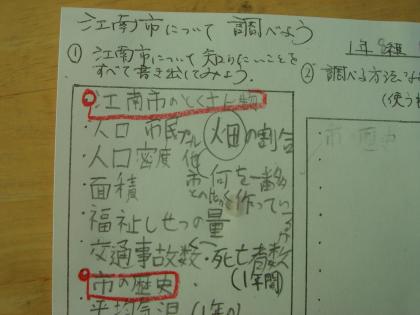 江南市について 調べよう
1年
① 江南市について 知りたいことを
すべて書き出してみよう.
② 調べる方法
(使う
江南市のとくさん物
・人口 市民プール 畑の割合
・人口密度
・面積 何を一番多
作ってい
・福祉しせつの量
・交通事故数・死亡者数
(1年間)
市の歴史
・平均気温 (1年の
市 歴史